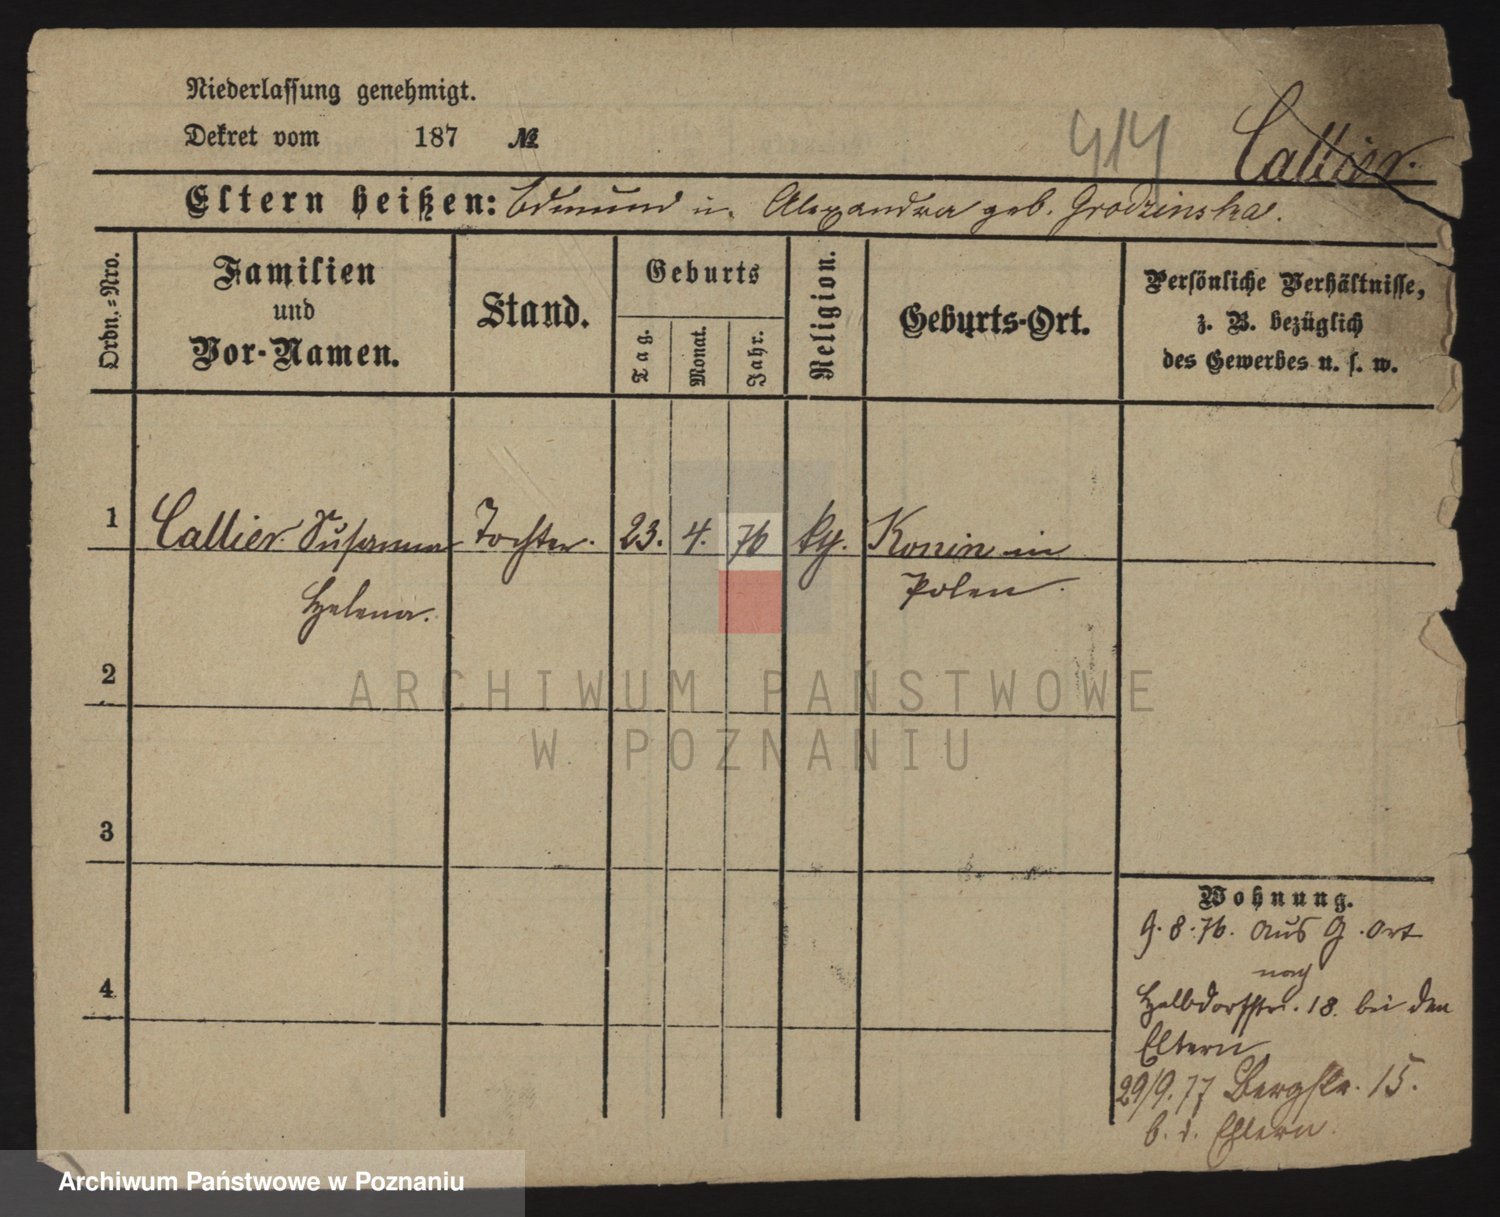 Niederlassung genehmigt.
Dekret vom 187 №
414
Callier.
Eltern heißen: Edmund u. Alexandra geb. Grodzinska.
Ordn.=Nro.
Familien und Vor-Namen.
Stand.
Geburts
Tag.
Monat.
Jahr.
Religion.
Geburts-Ort.
Persönliche Verhältnisse,
z. B. bezüglich
des Gewerbes u. s. w.
1 Callier Susanna Tochter. 23. 4. 76 Konin in
Helena. Polen.
2
ARCHIWUM PAŃSTWOWE
W POZNANIU
3
Wohnung.
9.8.76. aus G. Ort
nach
4
Halbdorfstr. 18. bei den
Eltern
29/9.77 Bergstr. 15.
b. d. Eltern.
Archiwum Państwowe w Poznaniu